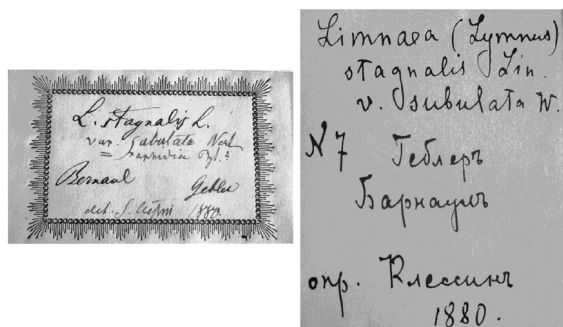 L. stagnalis L.
var. subulata West
Bernaul Gebler
det. S. 1880.
Limnaea (Lymnus)
stagnalis Lin.
v. subulata W.
N 7 Геблеръ
Барнаулъ
опр. Клессинъ
1880.